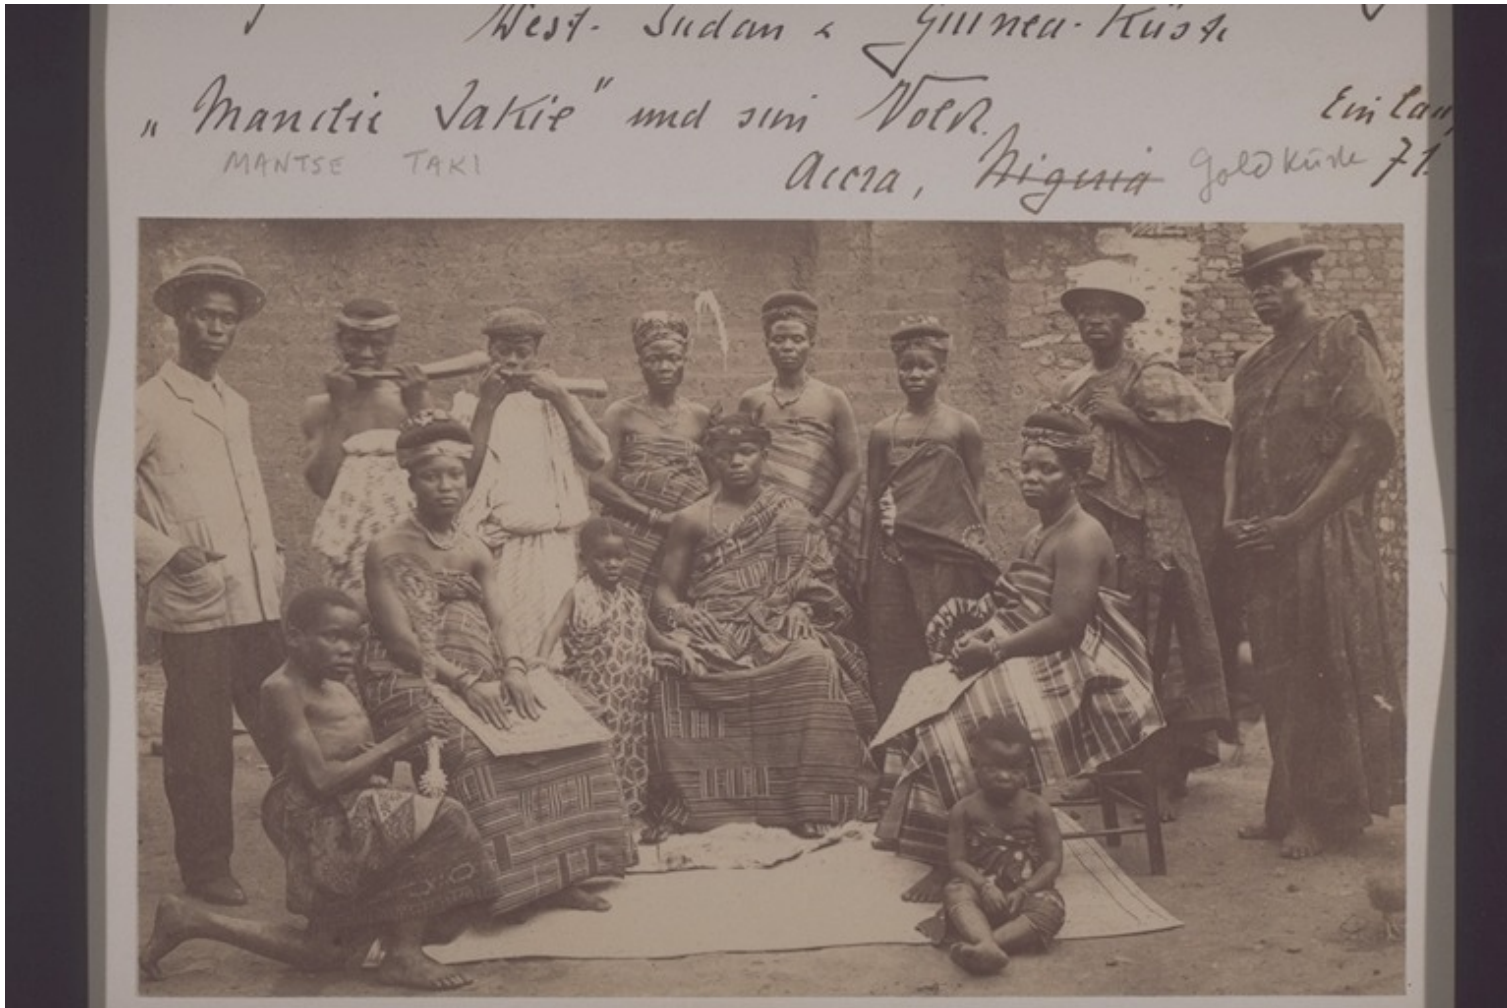 West-Sudan & Guinea-Küste
„Mantse Takie" und sein Volk.
Ein
MANTSE TAKI
Accra, Nigeria Goldküste 71.